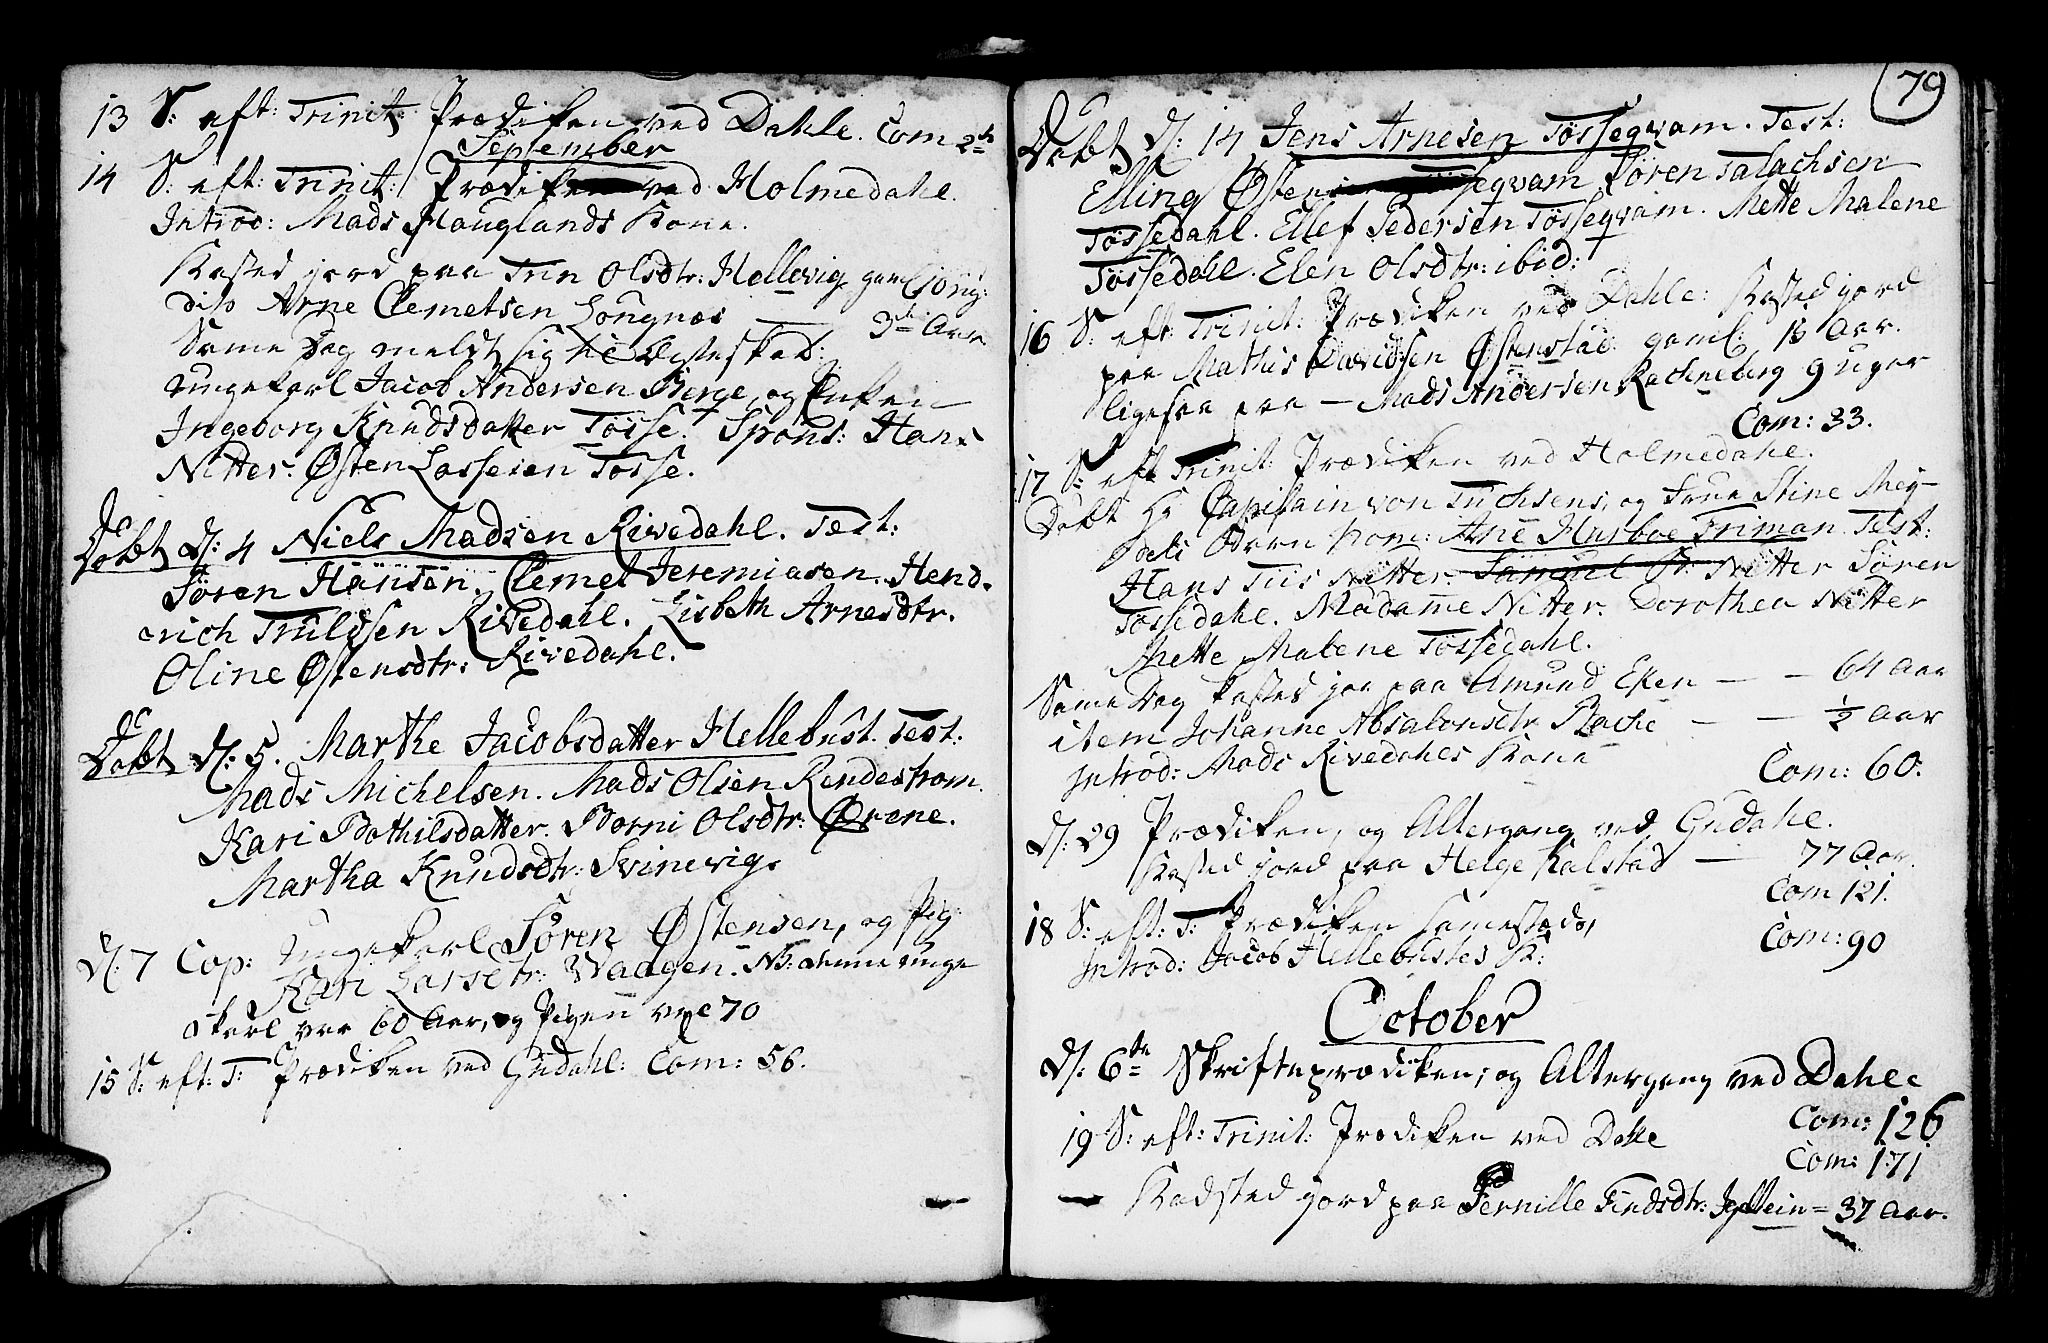 13 S: eft: Trinit: Prædiken ved Dahle. Com 2
September
14 S: eft: Trinit: Prædiken ved Holmedahl.
Introd: Mads Hauglands Kone.
Kasted jord paa Olsdtr: Hellevig gaml
Arne Clemetsen Longnæs — 3 Aar
Same Dag meldt sig til Ægteskab:
ungekarl Jacob Andersen Berge, og Enken
Ingeborg Knudsdatter Tøsse. Spons: Hans
Nitter. Østen Lassesen Tøsse.
Døbt d: 4 Niels Madsen Rivedahl. Test:
Søren Hansen. Clemet Jeremiasen. Hend-
rich Truldsen Rivedahl. Lisbeth Arnesdtr.
Oline Østensdtr: Rivedahl.
Døbt d: 5. Marthe Jacobsdatter Hellebust. Test:
Mads Michelsen. Mads Olsen Rendestrom.
Kari Bothilsdatter. Borni Olsdtr: Ørene.
Martha Knudsdtr: Svinevig.
d: 7 Cop: ungekarl Søren Østensen, og Pig:
Kari Lassedtr: Waagen. NB: denne unge
Karl var 60 Aar, og Pigen 70
15 S: eft: T: Prædiken ved Gudahl: Com: 56.
79
Døbt d: 14 Jens Arnesen Tøsseqvam. Test:
Elling Østens Tøsseqvam Søren Salachsen
Tøssedahl. Ellef Pedersen Tøsseqvam. Mette Malene
Tøssedahl. Elen Olsdtr: ibid:
16 S: eft: Trinit: Prædiken ved Dahle: Kasted jord
paa Mathis Davidsen Østenstad gaml: 15 Aar.
ligesaa paa — Mads Andersen Rachneberg 9 uger
Com: 33.
17 S: eft Trinit: Prædiken ved Holmedahl.
Døbt Hr Capitain von Tuchsens, og Frue Stine Mey-
dels Børn Nom: Ane Husboe Friman Test:
Hans Tiis Nitter. Samuel B: Nitter Søren
Tøssedahl. Madame Nitter. Dorothea Nitter
Mette Malene Tøssedahl.
Same Dag kasted jor paa Amund Eken — — 64 Aar
item Johanne Absalonsdtr Bache — — ½ Aar
Introd: Mads Rivedahls Kone
Com: 60.
d: 29 Prædiken, og Altergang ved Gudahl.
Kasted jord paa Helge Kalstad — 77 Aar.
Com 121.
18 S: eft: T: Prædiken samesteds,
Introd: Jacob Hellebustes K:
Com: 90
October
d: 6te Skrifteprædiken, og Altergang ved Dahle
Com: 126
19 S: eft: Trinit: Prædiken ved Dahle
Com: 171
— Kasted jord paa Pernille Findsdtr: = 37 Aar.